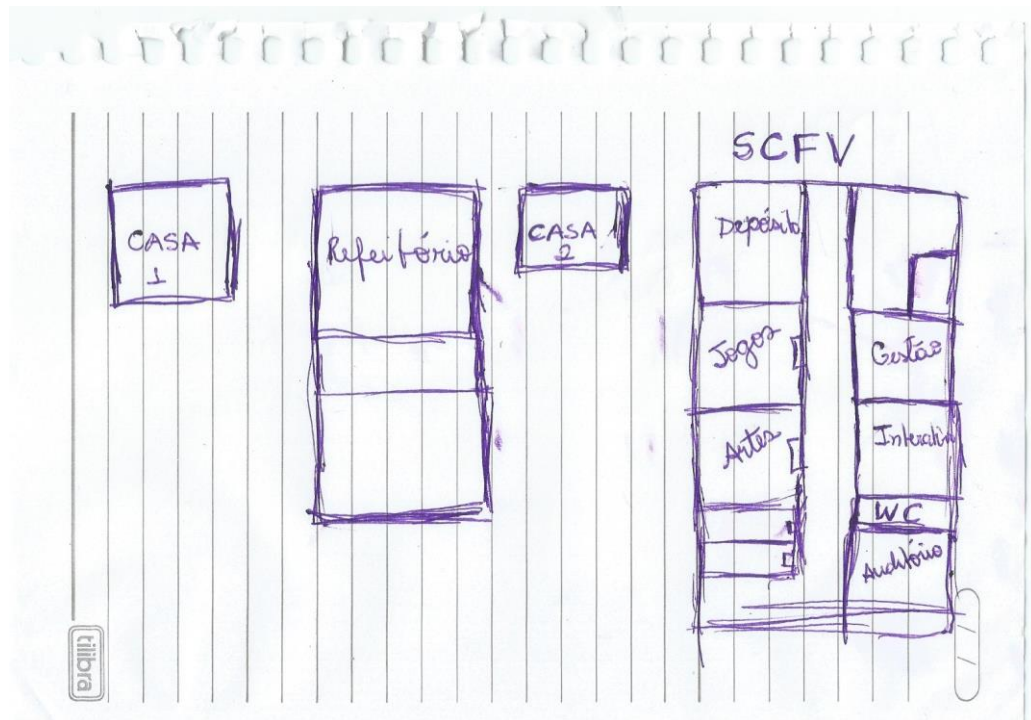 SCFV
CASA
1
Refeitório
CASA
2
Depósito
Jogos
Artes
Gestão
Interativ
WC
Auditório
tilibra